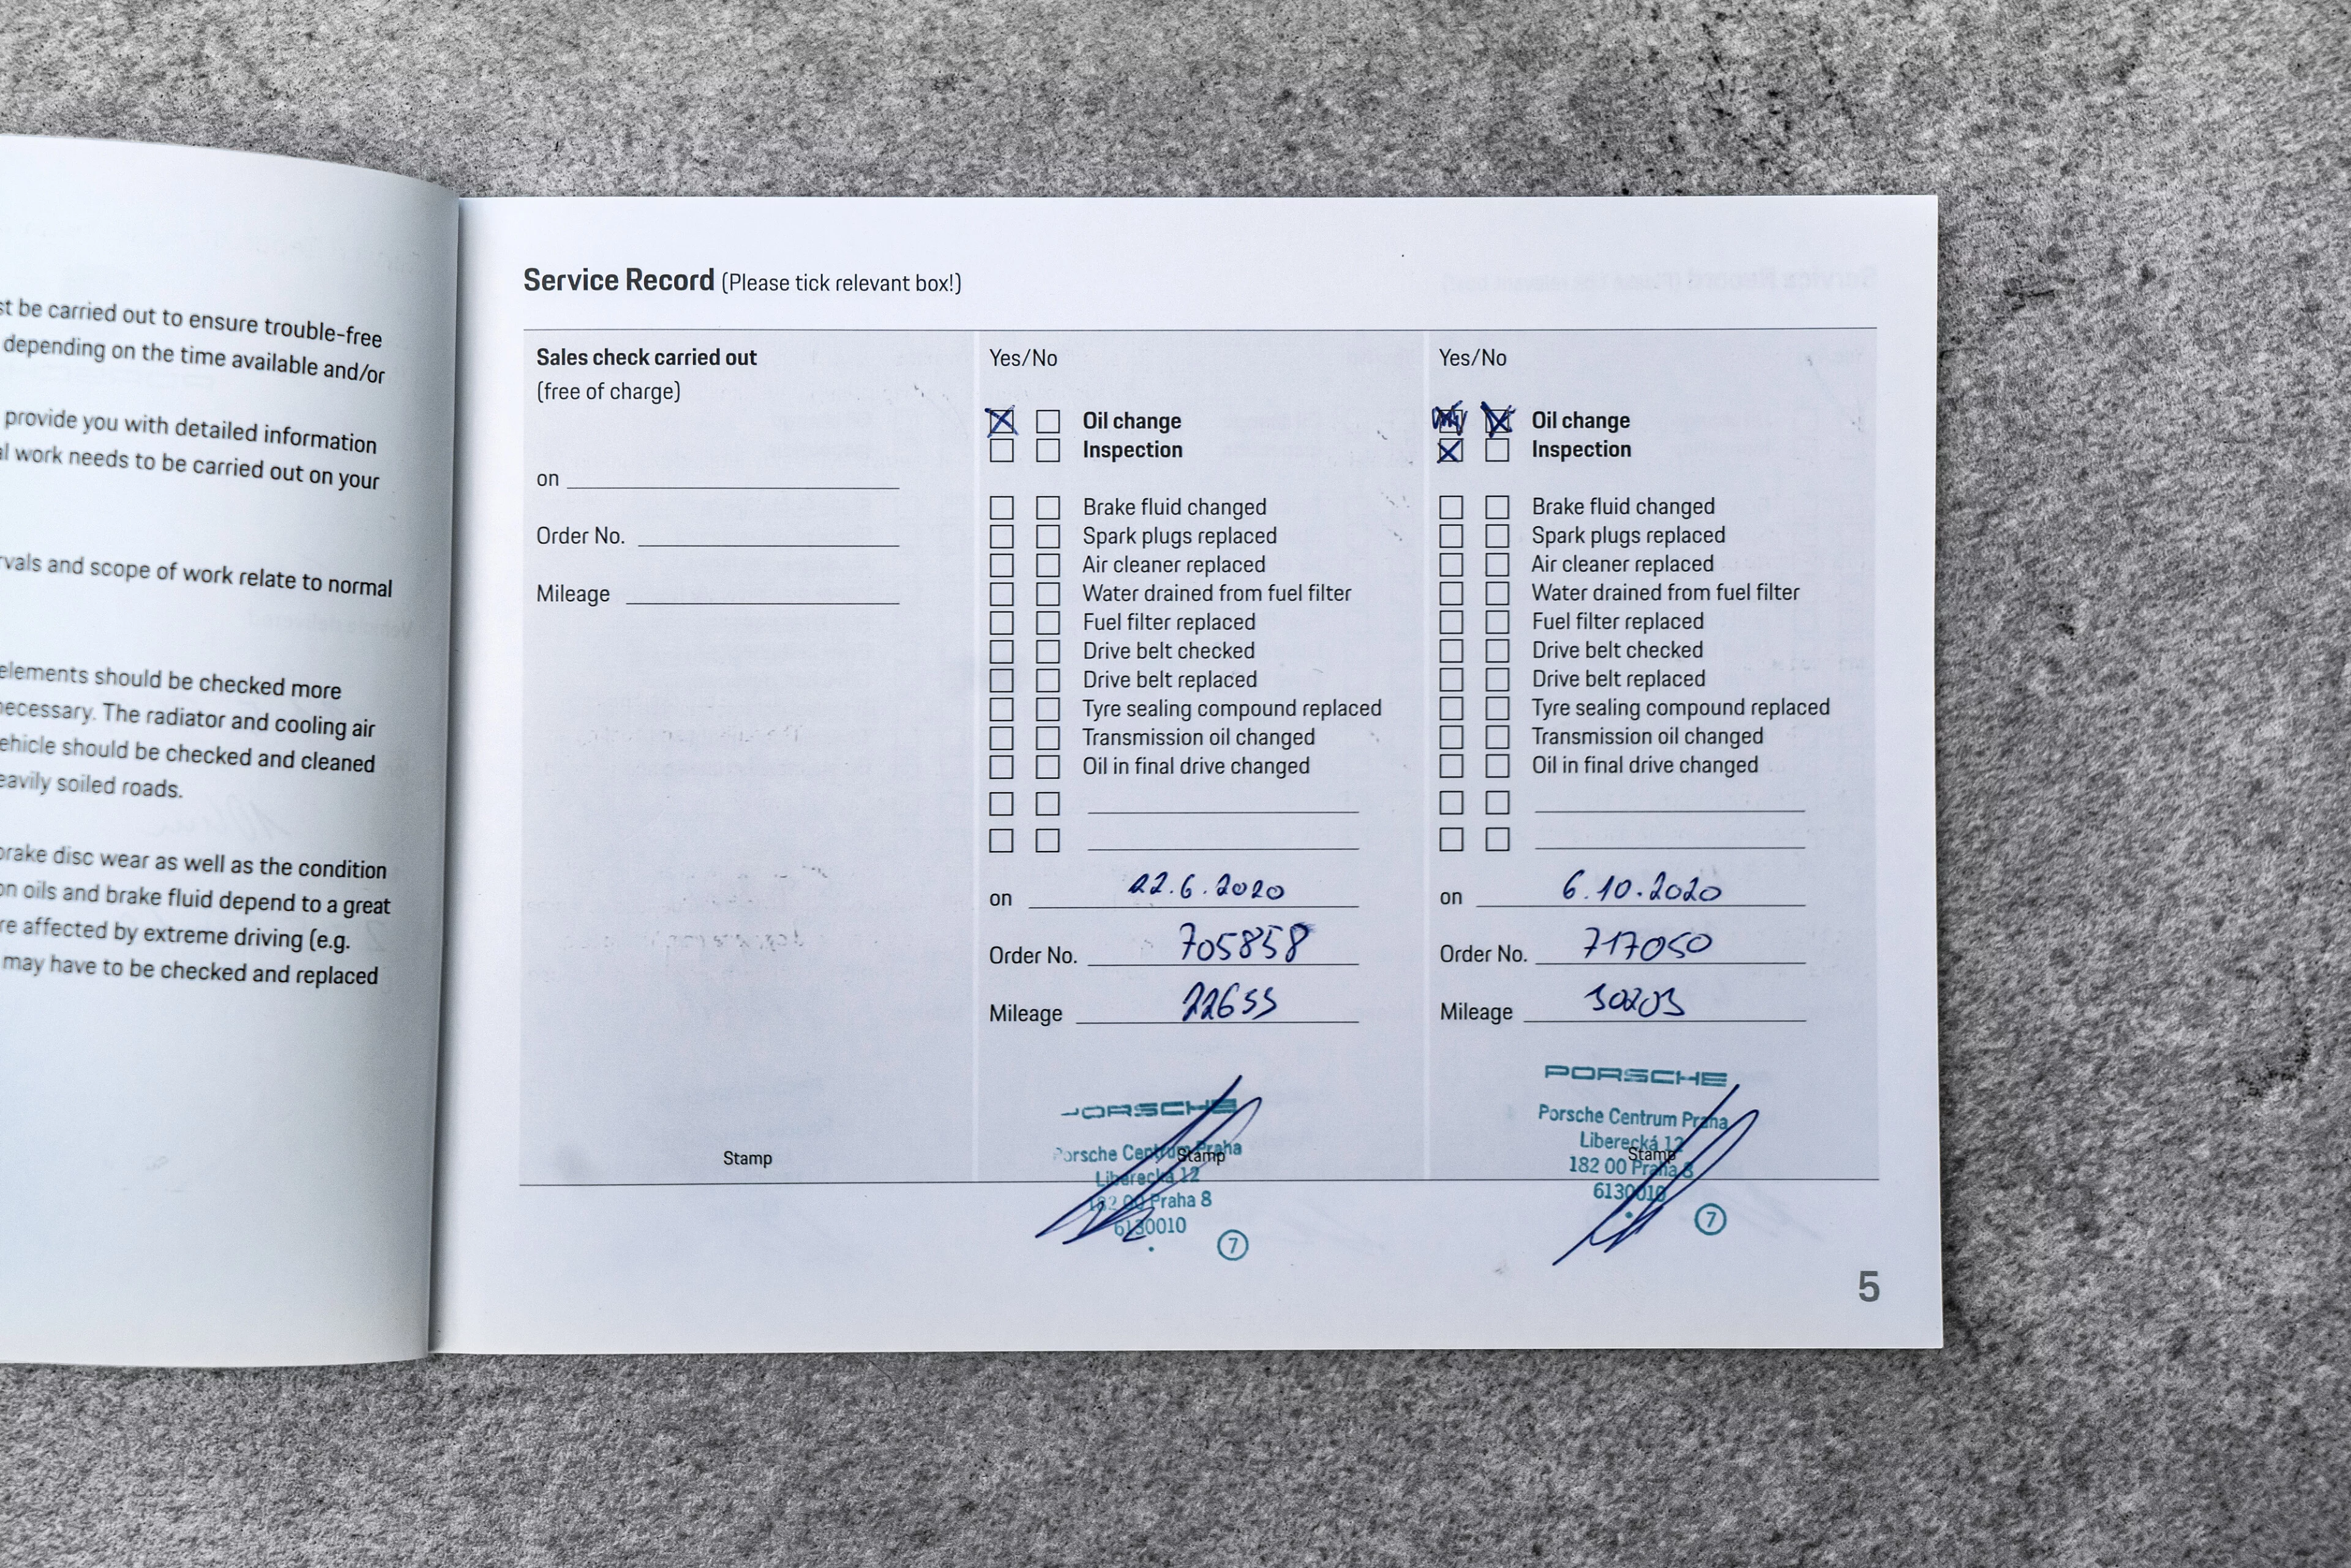 st be carried out to ensure trouble-free
depending on the time available and/or
provide you with detailed information
al work needs to be carried out on your
rvals and scope of work relate to normal
elements should be checked more
necessary. The radiator and cooling air
ehicle should be checked and cleaned
eavily soiled roads.
brake disc wear as well as the condition
on oils and brake fluid depend to a great
re affected by extreme driving (e.g.
may have to be checked and replaced
Service Record (Please tick relevant box!)
Sales check carried out
(free of charge)
on
Order No.
Mileage
Stamp
Yes/No
Oil change
Inspection
Brake fluid changed
Spark plugs replaced
Air cleaner replaced
Water drained from fuel filter
Fuel filter replaced
Drive belt checked
Drive belt replaced
Tyre sealing compound replaced
Transmission oil changed
Oil in final drive changed
on 22.6.2020
Order No. 705858
Mileage 22653
PORSCHE
Porsche Centrum Praha
Stamp
Liberecká 12
182 00 Praha 8
6130010
7
Yes/No
Oil change
Inspection
Brake fluid changed
Spark plugs replaced
Air cleaner replaced
Water drained from fuel filter
Fuel filter replaced
Drive belt checked
Drive belt replaced
Tyre sealing compound replaced
Transmission oil changed
Oil in final drive changed
on 6.10.2020
Order No. 717050
Mileage 30203
PORSCHE
Porsche Centrum Praha
Liberecká 12
Stamp
182 00 Praha 8
6130010
7
5